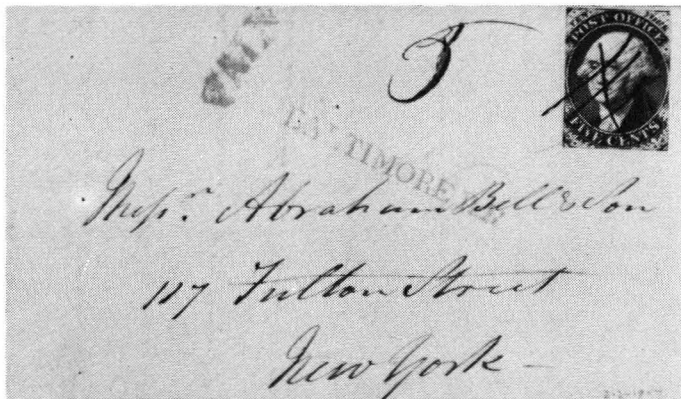 PAID
5
POST OFFICE
FIVE CENTS
BALTIMORE
Messrs. Abraham Bell & Son
117 Fulton Street
New York